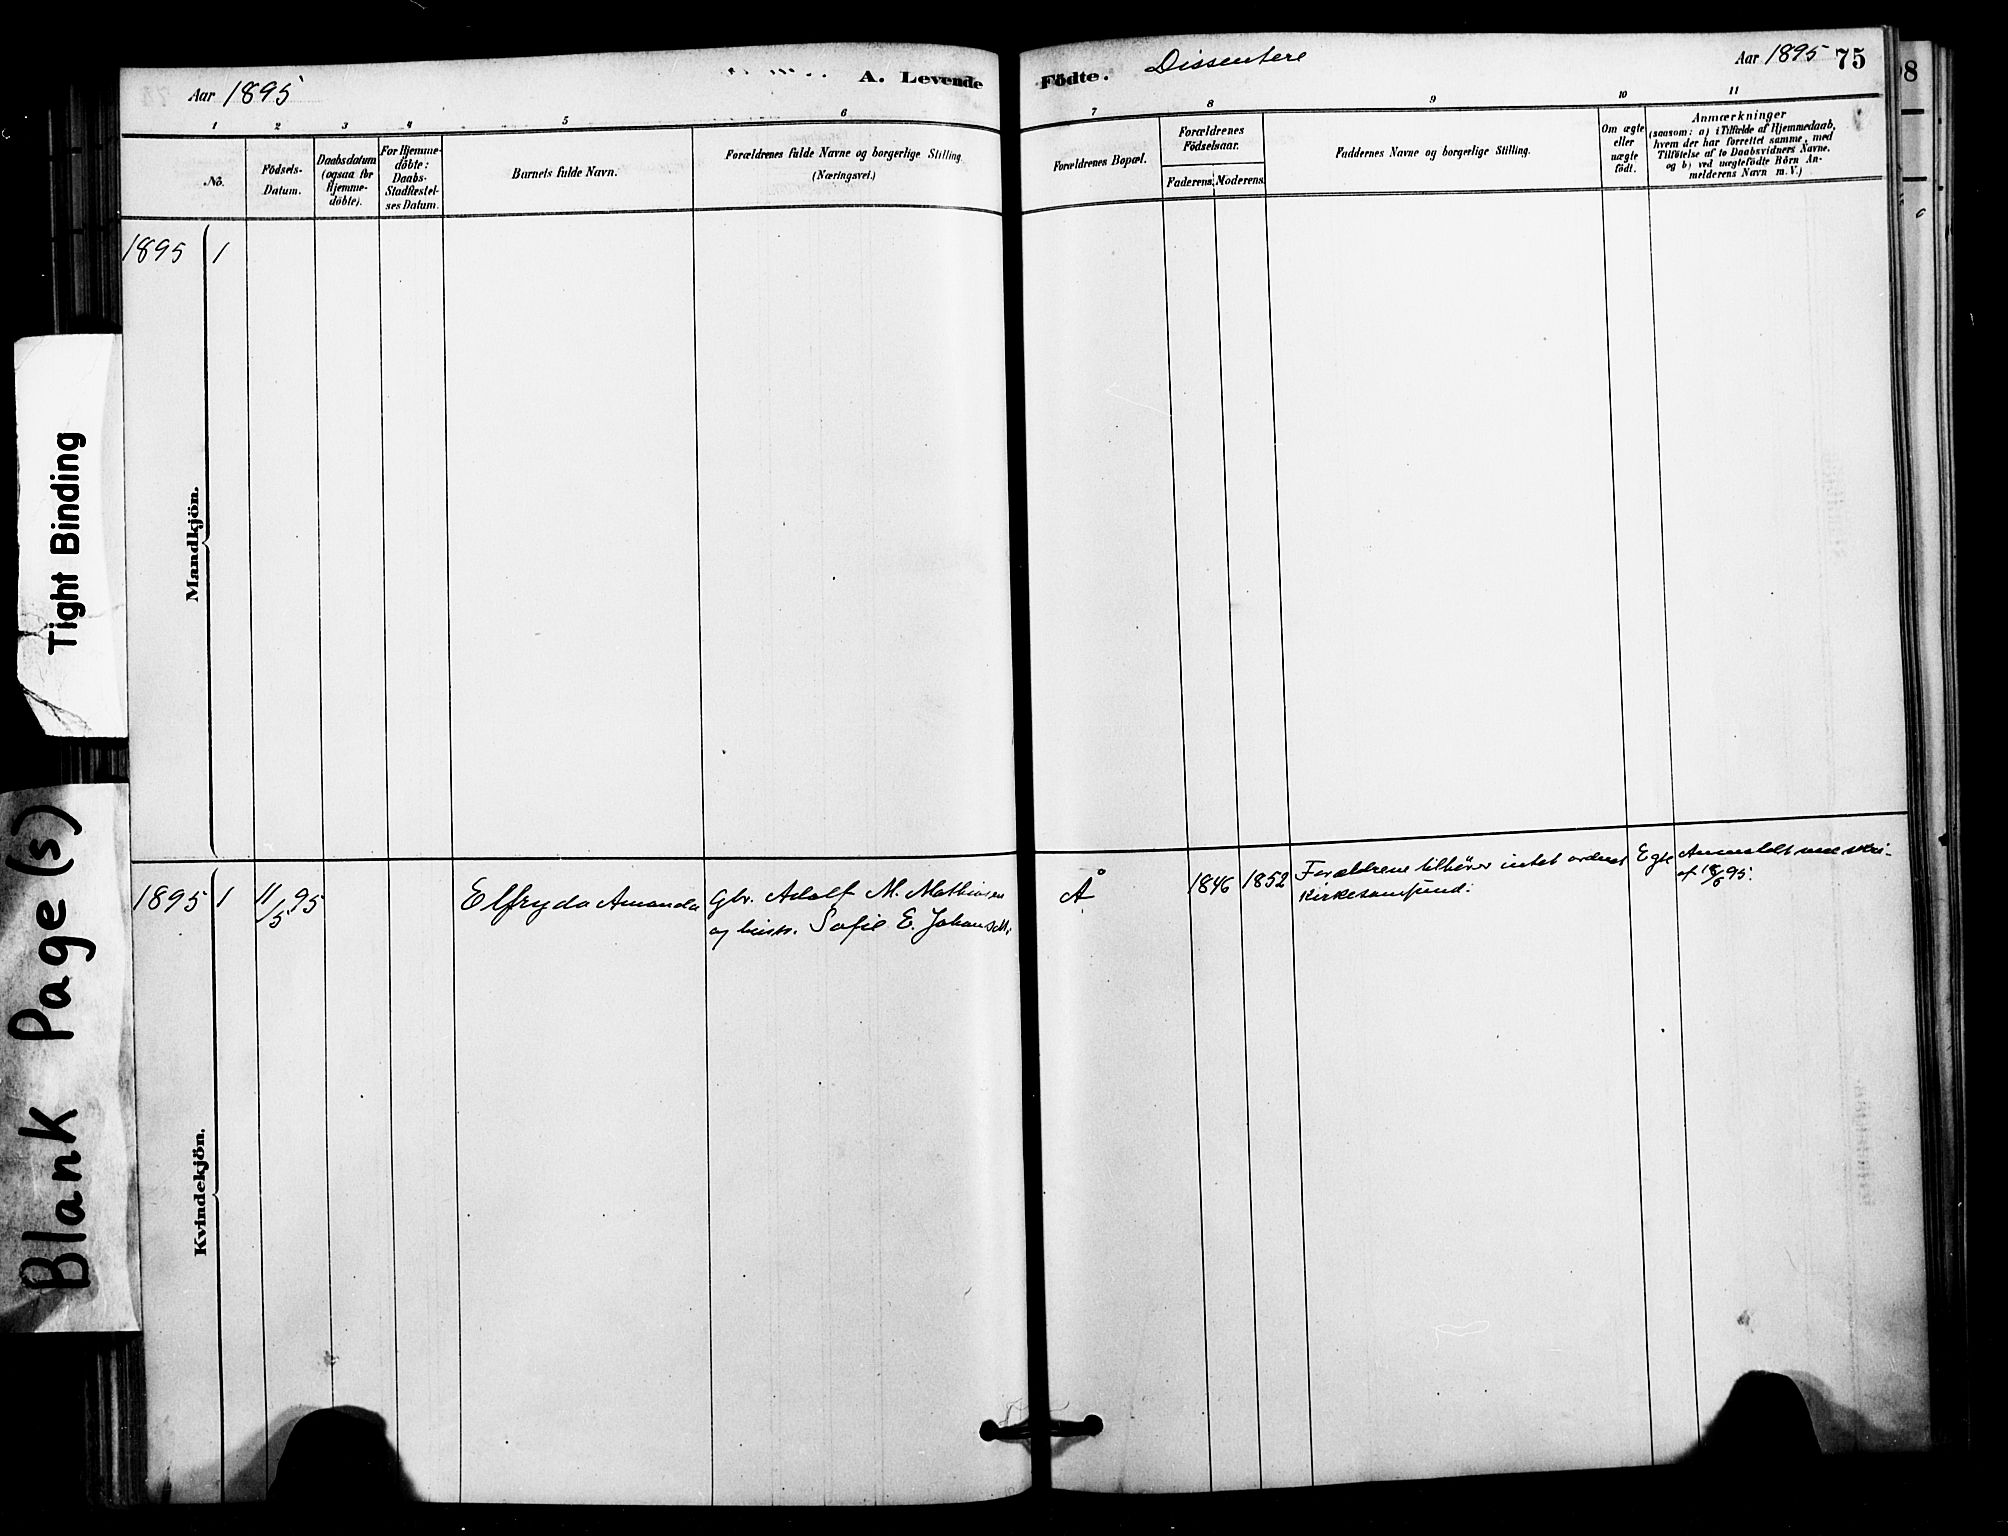 Aar 1895
A. Levende
Födte.
Dissentere
Aar 1895
75
98
1
2
3
4
5
6
7
8
9
10
11
No.
Födsels-
Datum.
Daabsdatum
(ogsaa for
Hjemme-
döbte).
For Hjemme-
döbte:
Daabs-
Stadfæstel-
ses Datum.
Barnets fulde Navn.
Forældrenes fulde Navne og borgerlige Stilling
(Næringsvei.)
Forældrenes Bopæl.
Forældrenes
Födselsaar.
Faderens.
Moderens.
Faddernes Navne og borgerlige Stilling.
Om ægte
eller
uægte
födt.
Anmærkninger
(saasom: a) i Tilfælde af Hjemmedaab,
hvem der har forrettet samme, med
Tilföielse af to Daabsvidners Navne,
og b) ved uægtefödte Börn An-
melderens Navn m. V.)
1895
1
Mandkjön.
1895
1
11/5 95
Elfryda Amanda
Gbr. Adolf M. Mathiasen
og hustr. Sofie E. Johansdtr.
Å
1846
1852
Forældrene tilhører intet ordnet
Kirkesamfund.
Egte
Anmeldt ved skri-
af 18/6 95.
Kvindekjön.
Tight Binding
Blank Page(s)